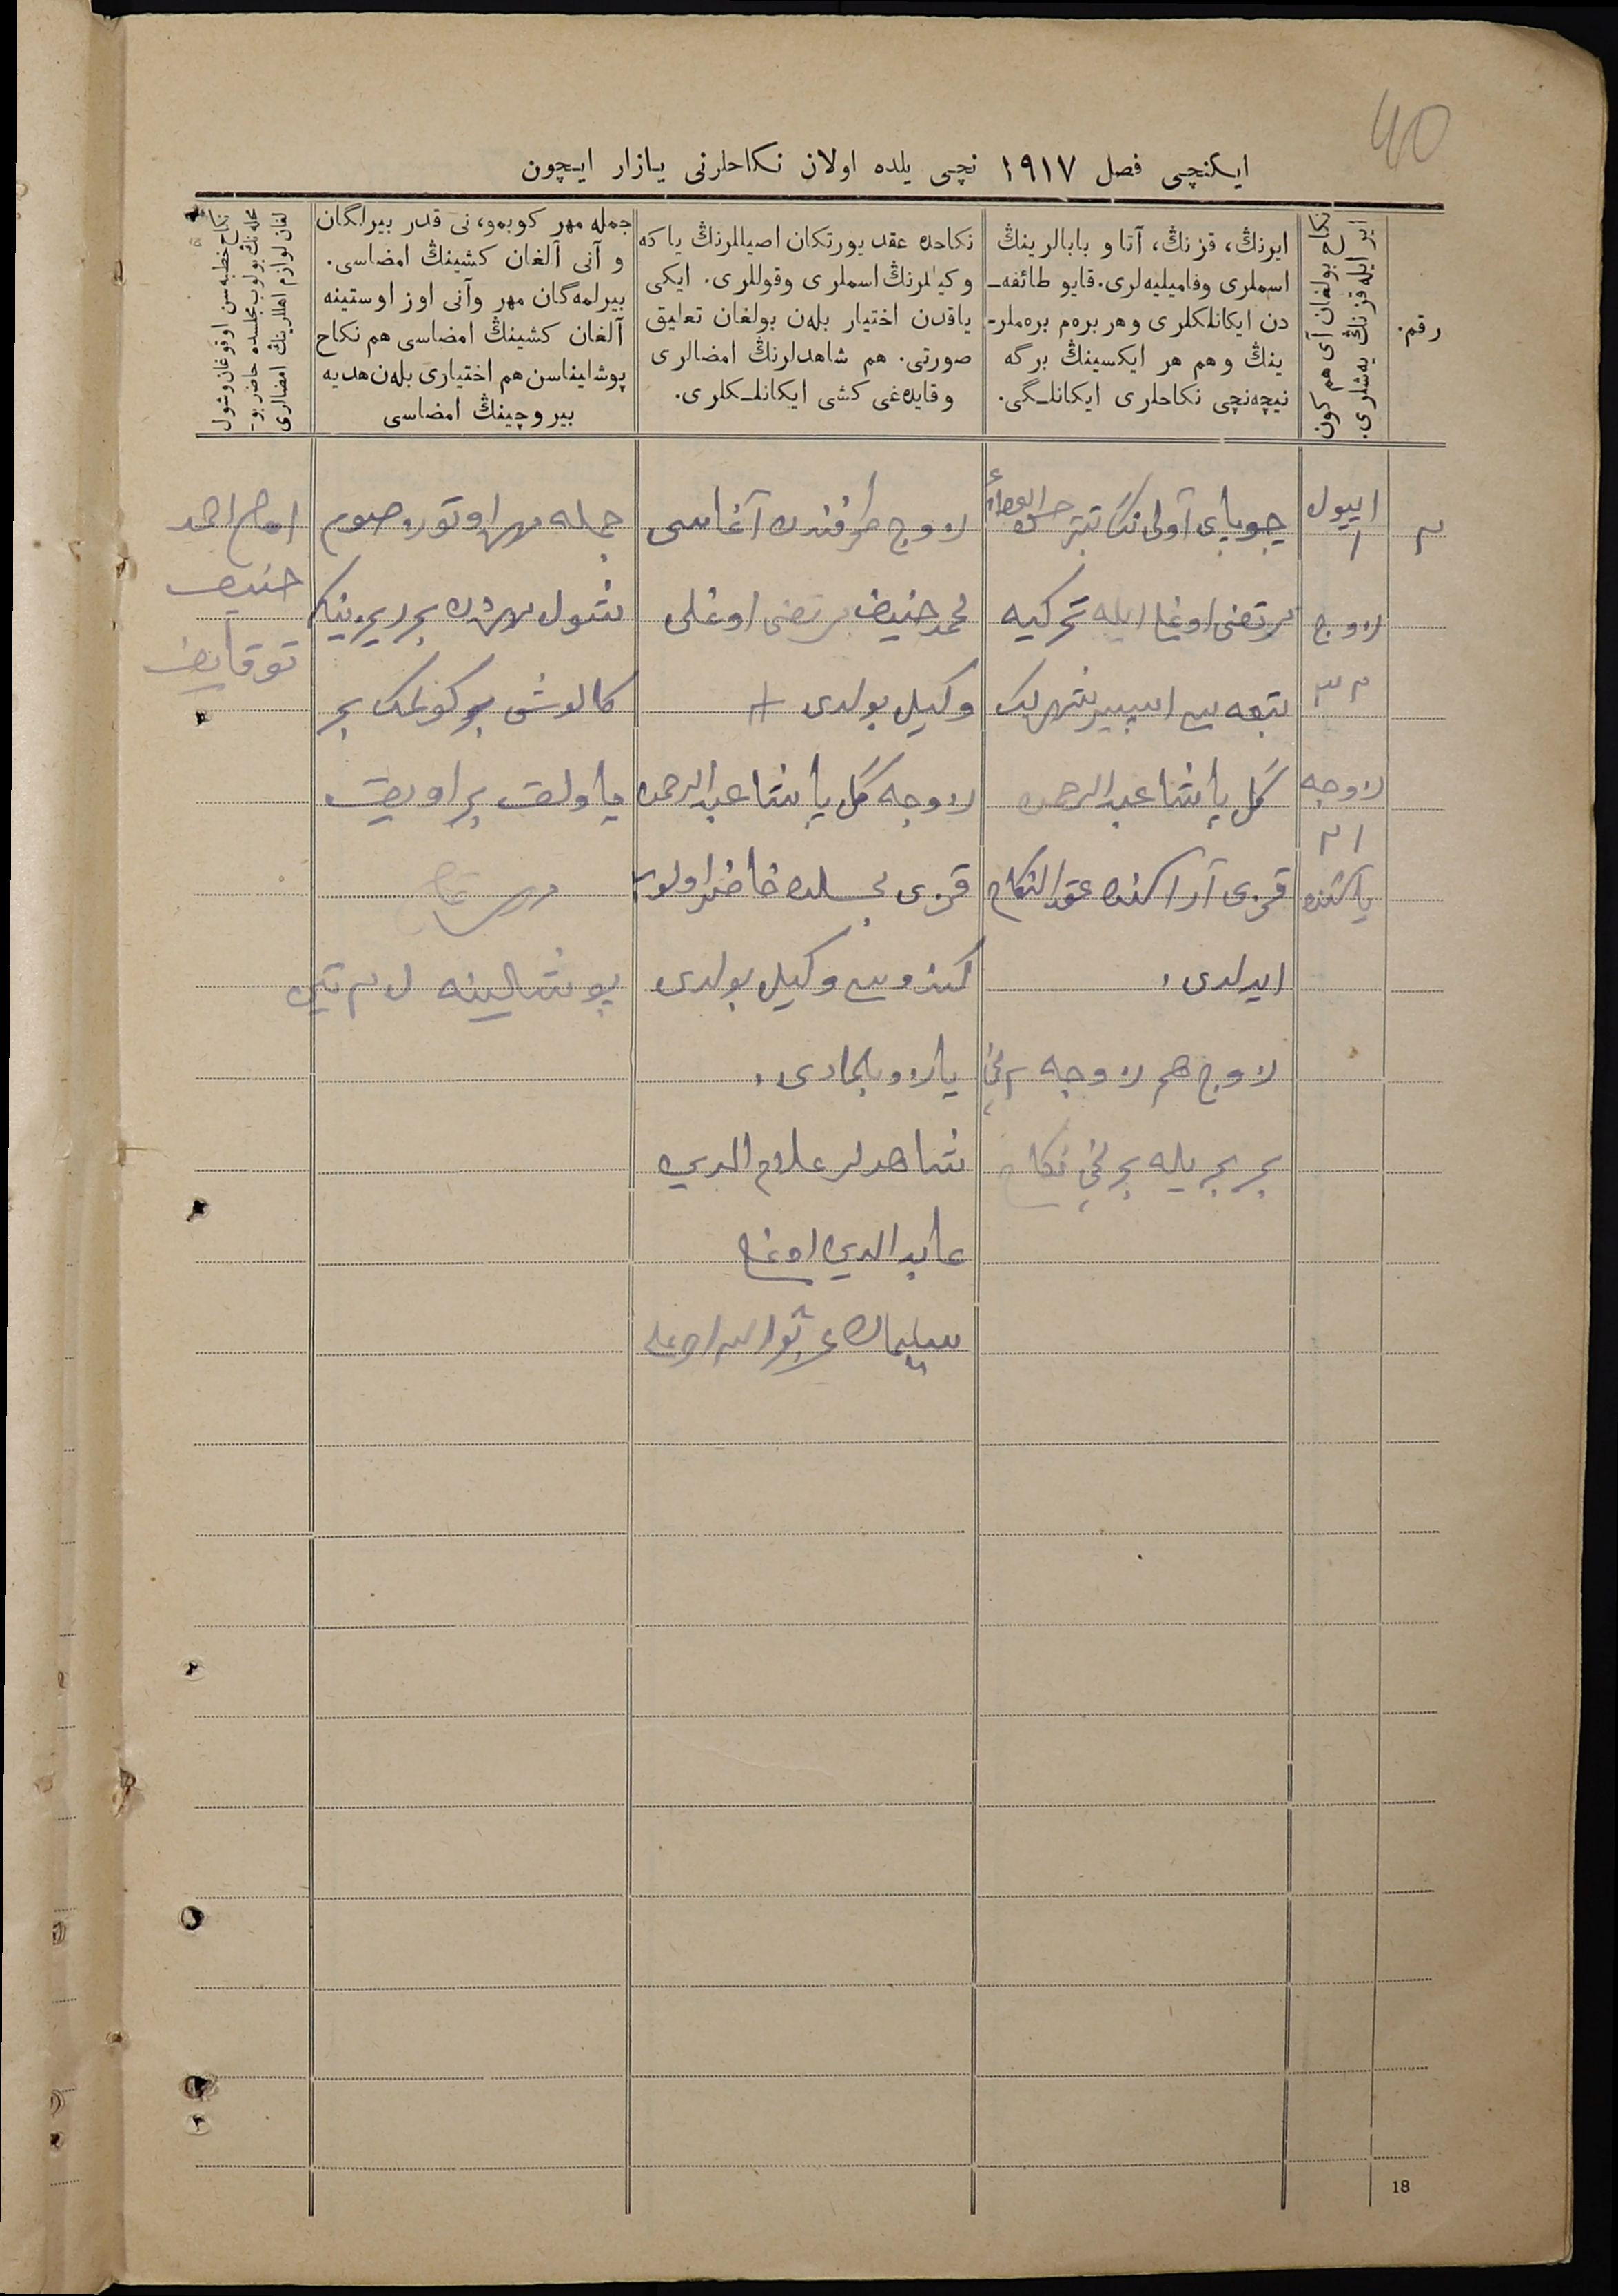 40
ایکنچی فصل ۱۹۱۷ نچی یلده اولان نکاحلرنی یازار ایچون
رقم.
نکاح بولغان آی هم کون
ایر ایله قزنڭ یه‌شلری.
ایرنڭ، قزنڭ، آتا و بابالرینڭ
اسملری وفامیلیه‌لری. قایو طائفه‌ـ
دن ایکانلکلری وهر بره‌م بره‌ملرـ
ینڭ وهم هر ایکسینڭ برگه
نیچه‌نچی نکاحلری ایکانلـگی.
نکاحده عقد یورتکان اصیللرنڭ یا که
وکیللرنڭ اسملری وقوللری. ایکی
یاقدن اختیار بله‌ن بولغان تعلیق
صورتی. هم شاهدلرنڭ امضالری
وقایده‌غی کشی ایکانلـکلری.
جمله مهر کوبمو، نی قدر بیرلگان
و آنی آلغان کشینڭ امضاسی.
بیرلمه‌گان مهر وآنی اوز اوستینه
آلغان کشینڭ امضاسی هم نکاح
پوشلیناسن هم اختیاری بله‌ن هدیه
بیروچینڭ امضاسی
نکاح خطبه‌سن اوقوغان وشول
محله‌نڭ بولوب مجلسده حاضر بوـ
لغان لوازم اهللرینڭ امضالری
۲
اییول
۱
زوج
۲۳
زوجه
۲۱
یاشنده
چوبای آولی نڭ
مرتضی اوغلی ایله
گل پاشا عبدالرحمن
قزی آراسنده عقد النکاح
ایرلدی.
زوج هم زوجه ۲ نچی
بر بریله برنچی نکاح
زوج طرفندن آغاسی
محمد حنیف مرتضی اوغلی
وکیل بولدی +
زوجه گل پاشا عبدالرحمن
قزی مجلسده حاضر اولوب
وکیل بولدی
یازو بلمادی.
شاهدلر علاء الدین
عابدالدین اوغلی
سلیمان
جمله مهر اوتوز صوم
شول مهردن بر
کالوش بر کولمک بر
یاولق بر
پوشالینه
امام احمد
حنیف
توقایف
18